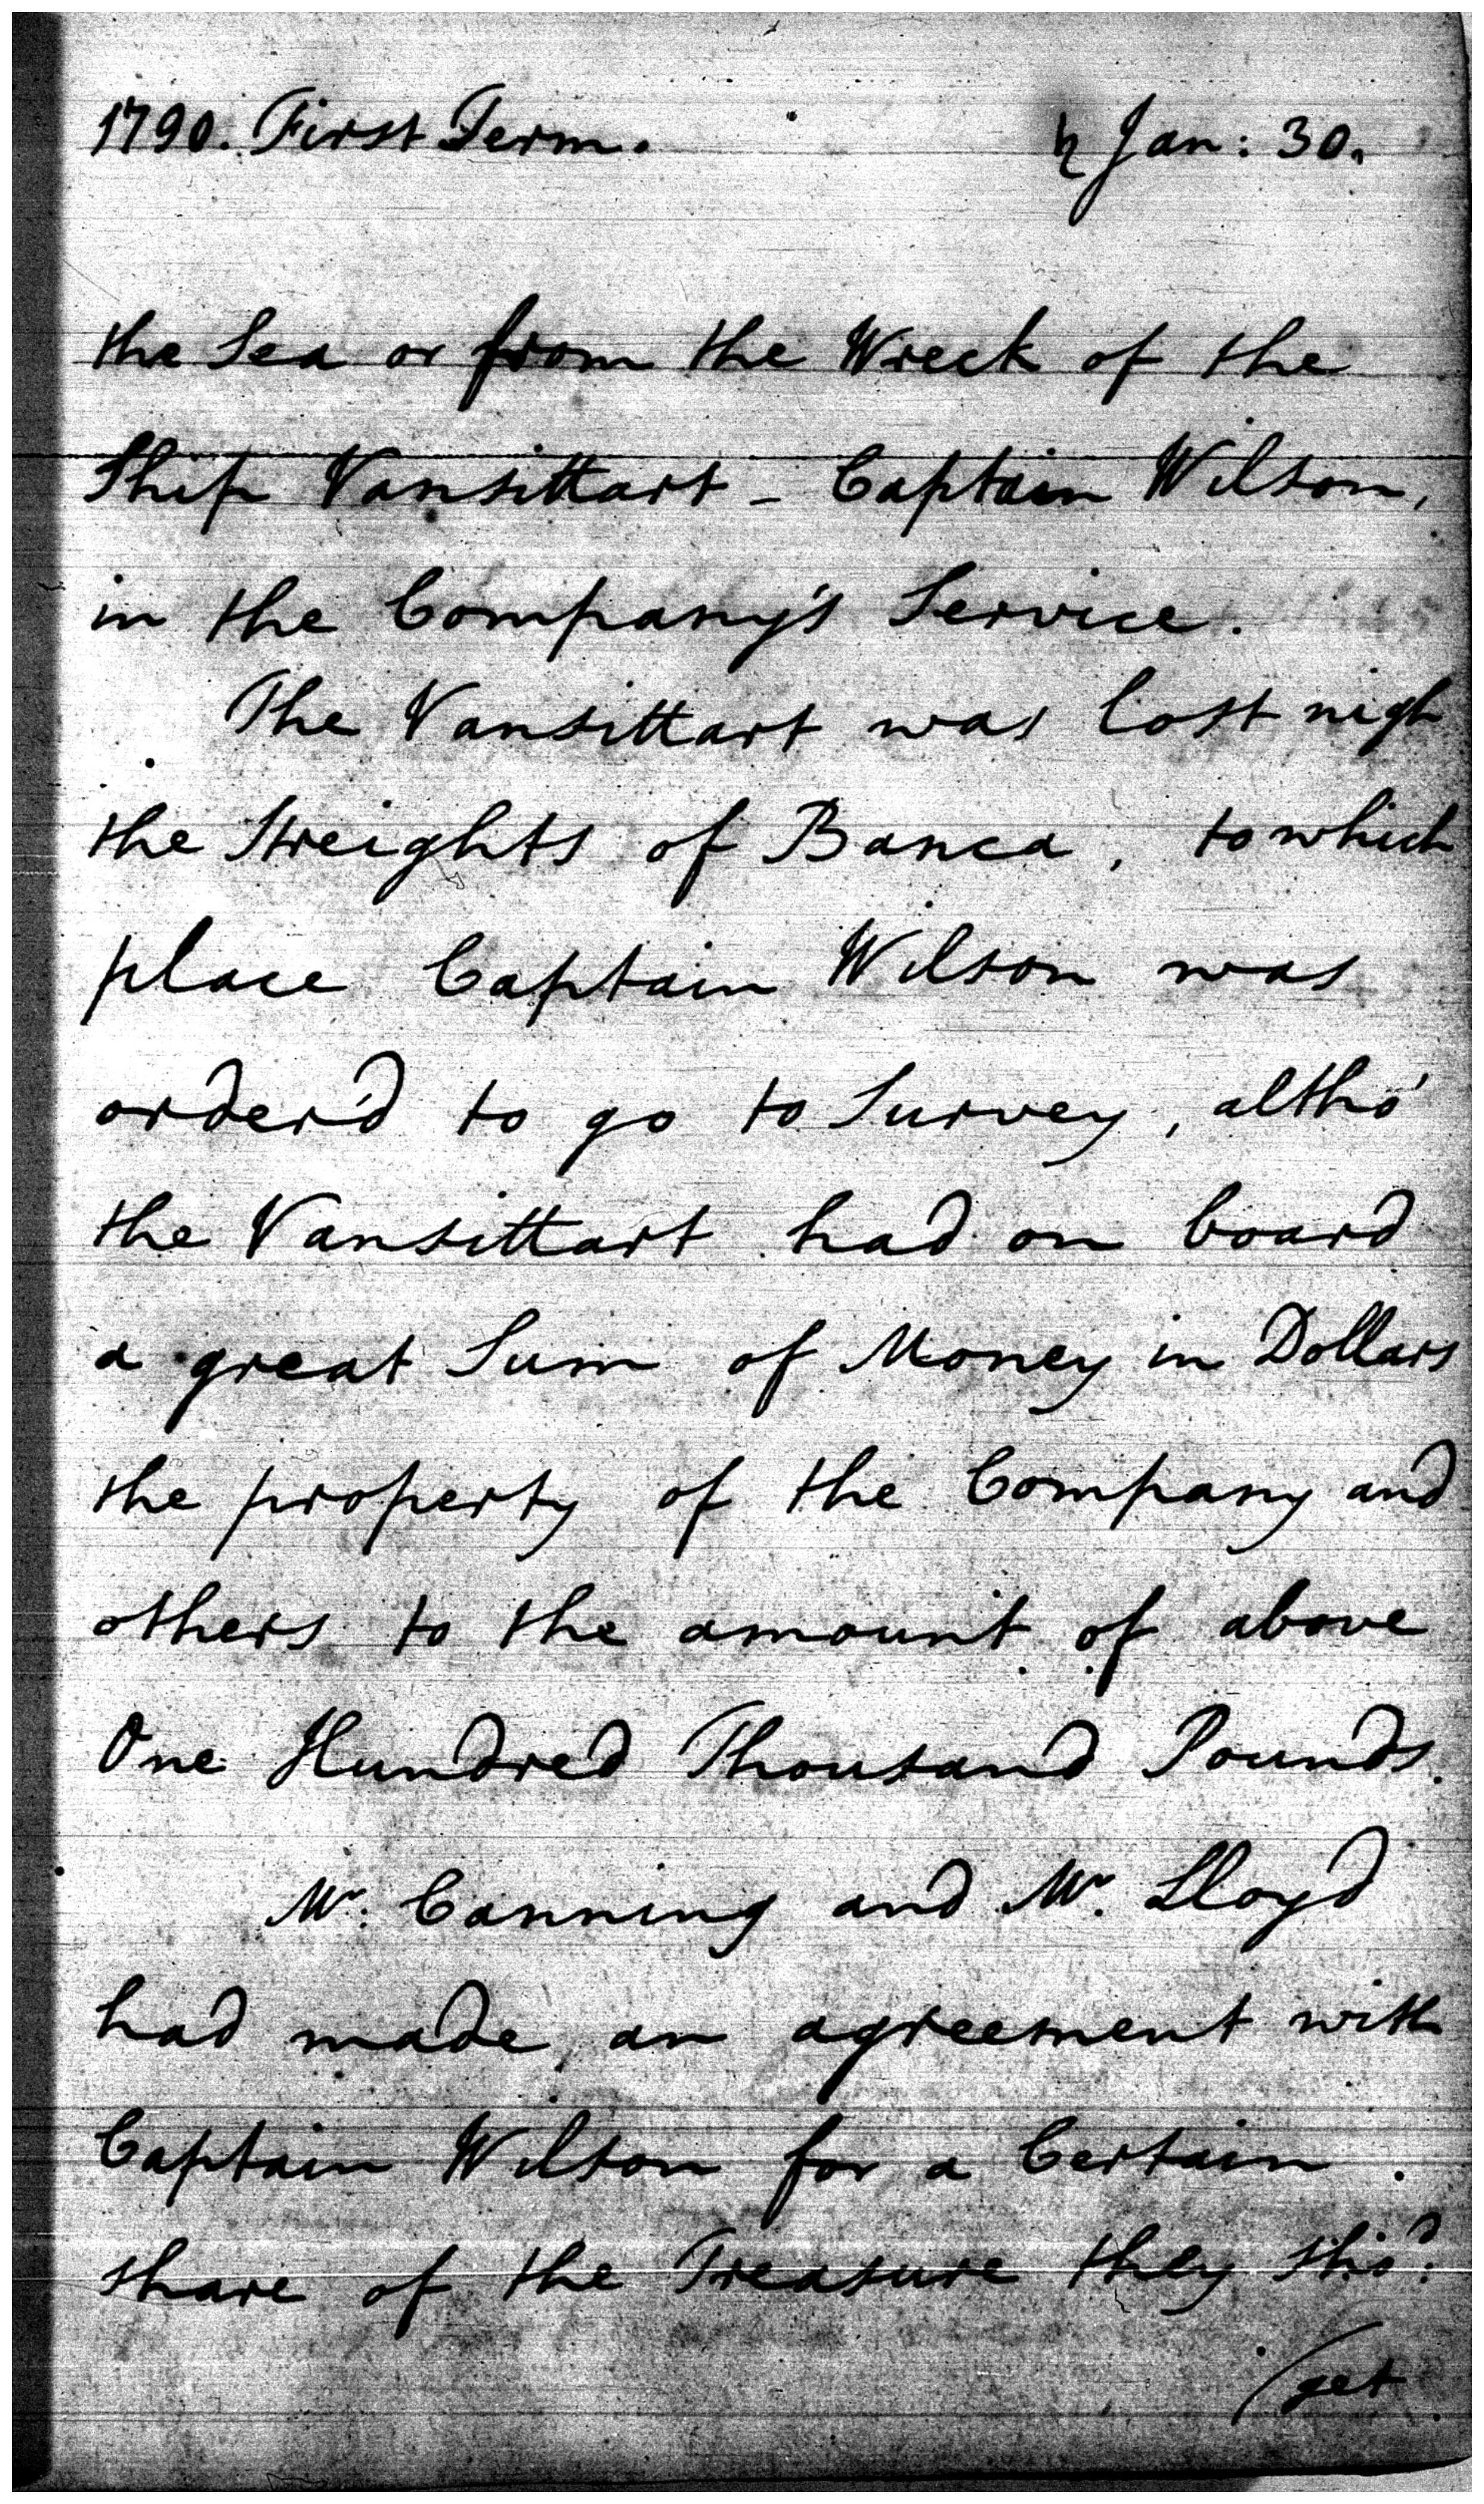 1790. First Term. ♄ Jan: 30.
the Sea or from the Wreck of the
Ship Vansittart - Captain Wilson,
in the Company's Service.
The Vansittart was lost nigh
the Streights of Banca, to which
place Captain Wilson was
order'd to go to Survey, altho'
the Vansittart had on board
a great Sum of Money in Dollars
the property of the Company and
others to the amount of above
One Hundred Thousand Pounds.
Mr. Canning and Mr. Lloyd
had made an agreement with
Captain Wilson for a Certain
share of the Treasure they sho'd:
(get